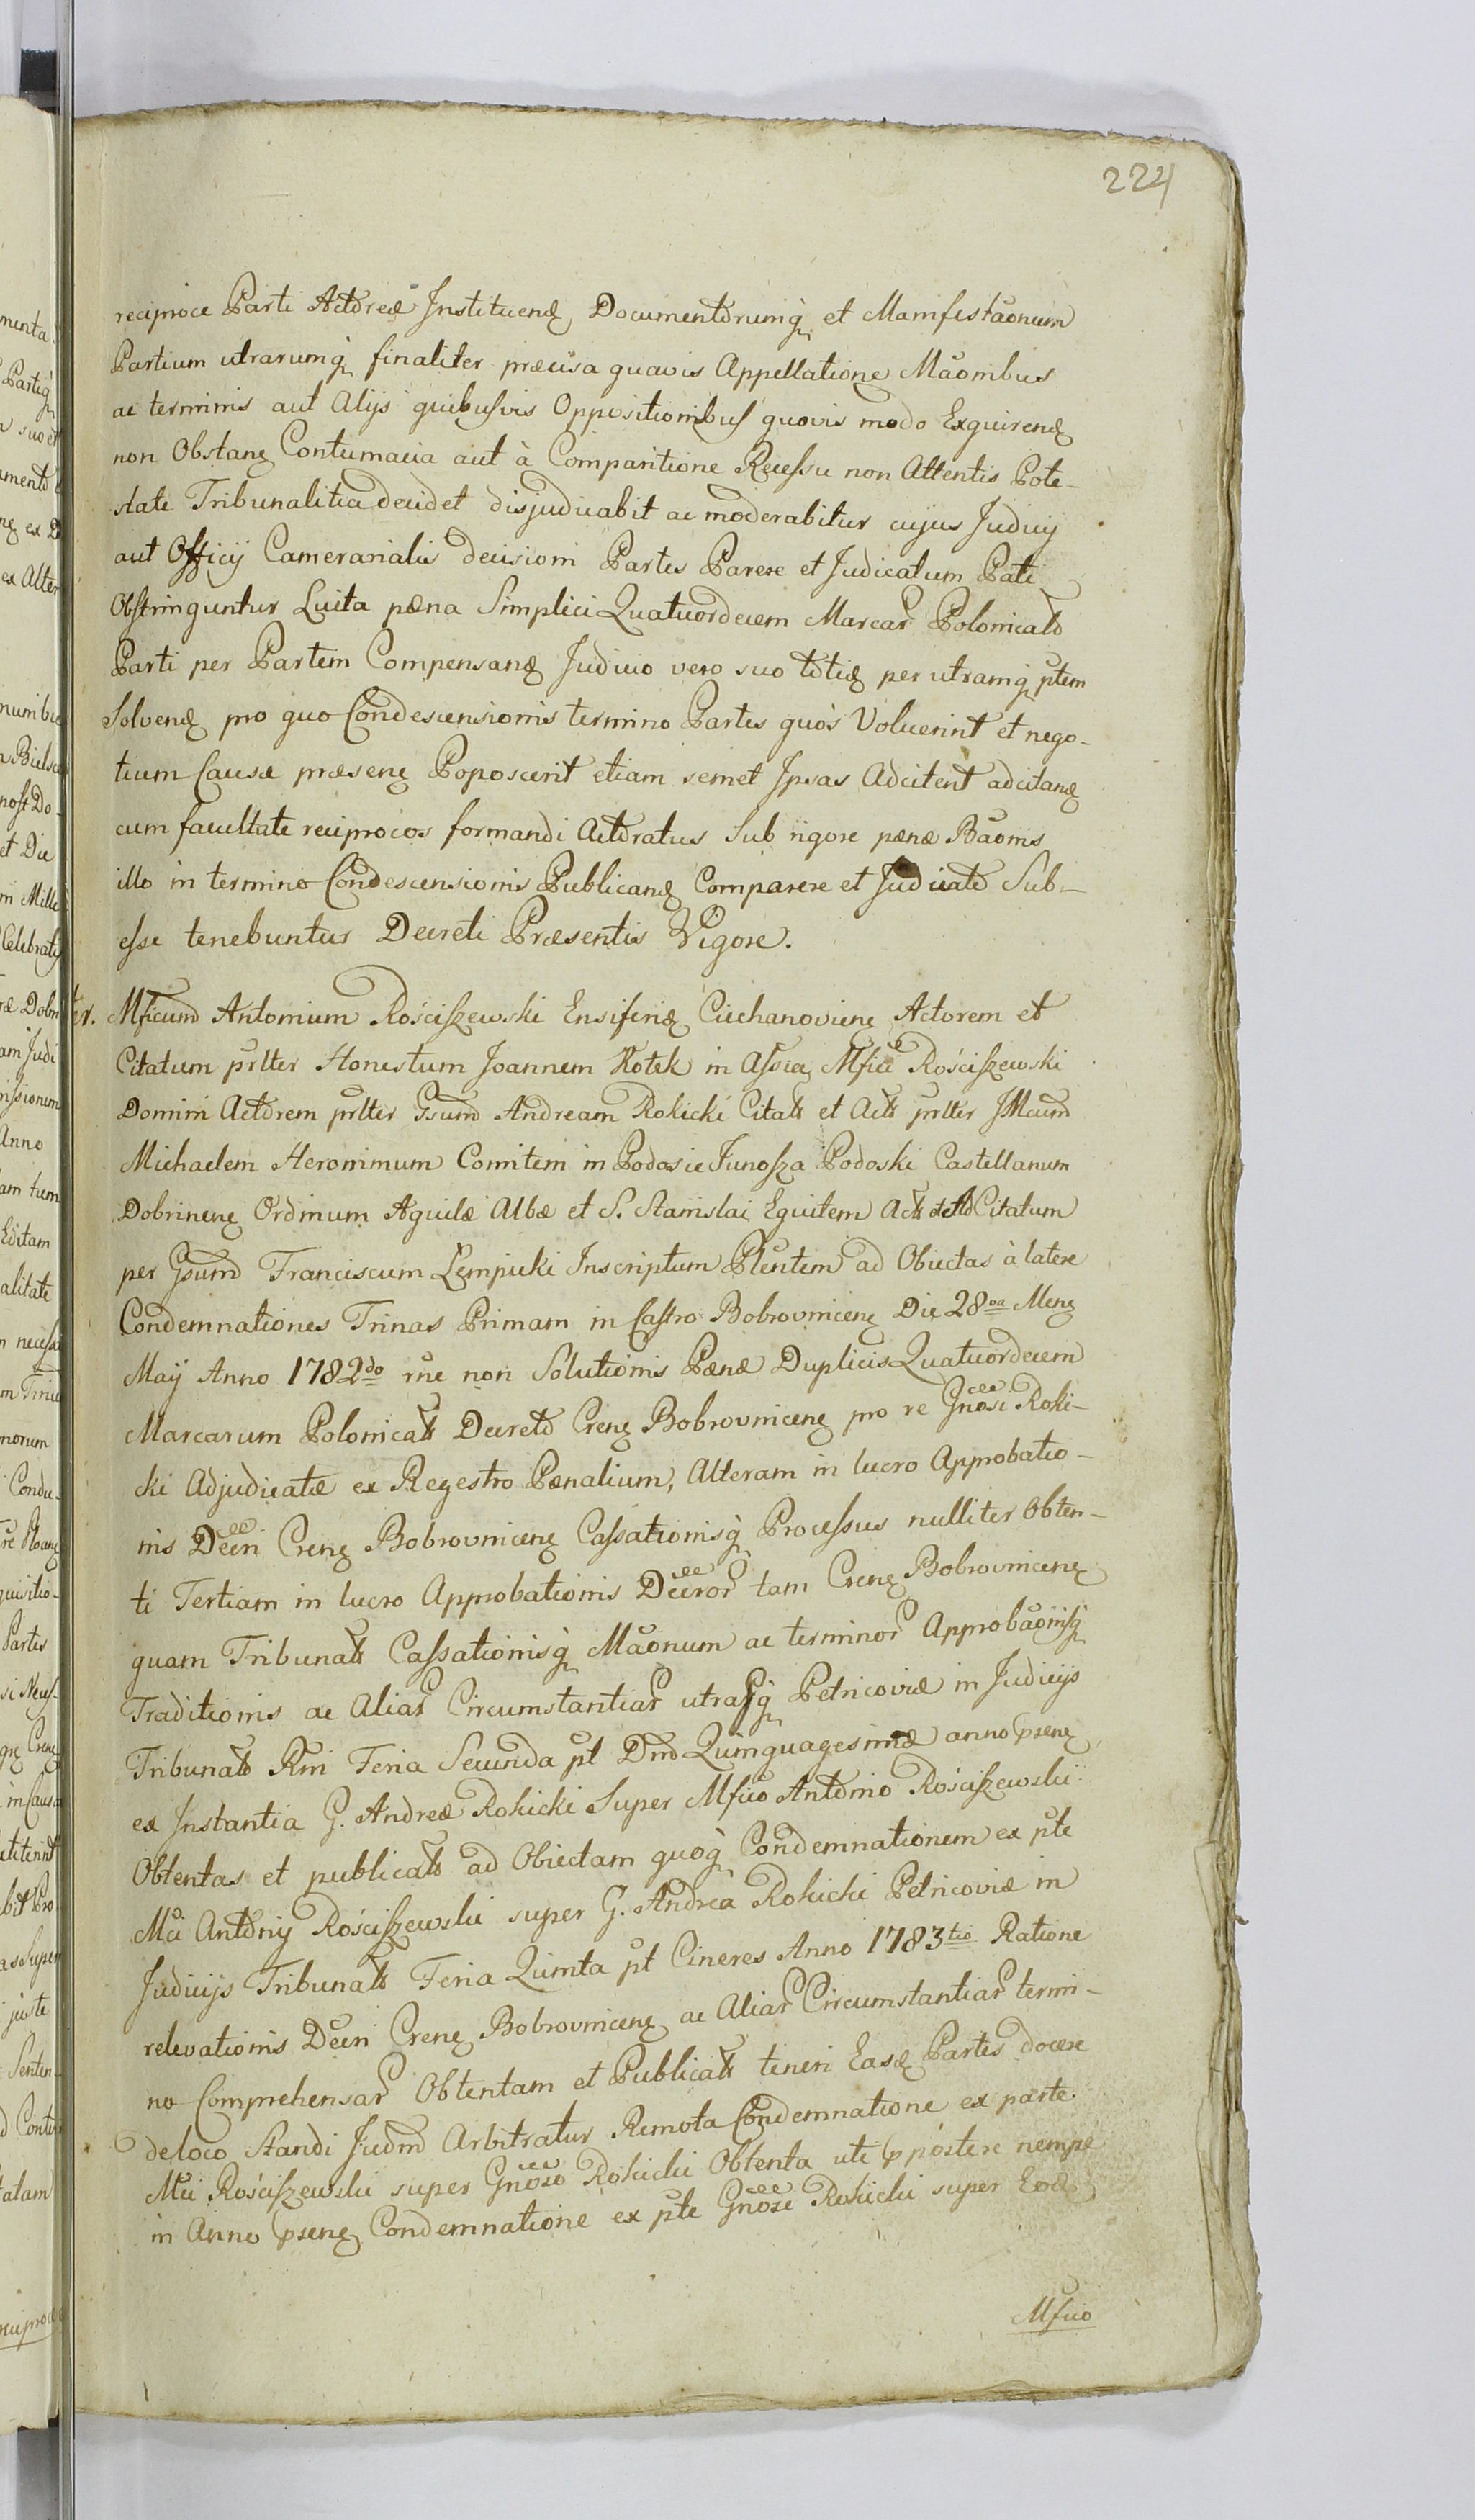 224
reciproce Parti Actoreæ Instituend, Documentorumq, et Manifestãonum
Partium utrarumq, finaliter præcisa quavis Appellatione Mãonibus
ac terminis aut Alijs quibusvis Oppositionibus quovis modo Exquirend
non Obstan Contumacia aut à Comparitione Recessu non Attentis Pote-
state Tribunalitia decidet disjudicabit ac moderabitur cujus Judicij
aut Officij Camerarialis decisioni Partes Parere et Judicatum Pati
Obstringuntur Luita pæna Simplici Quatuordecem Marcar Polonicalt
Parti per Partem Compensand Judicio vero suo totid per utramq ptem
Solvend pro quo Condescensionis termino Partes quos Voluerint et nego-
tium Causæ præsen Poposcerit etiam semet Ipsas Adcitent adcitand
cum facultate reciprocos formandi Actoratus Sub rigore pænæ Bãonis
illo in termino Condescensionis Publicand Comparere et Judicato Sub-
esse tenebuntur Decreti Præsentis Vigore.
Mficum Antonium Rościszewski Ensiferid Ciechanovien Actorem et
Citatum prlter Honestum Joannem Kotek in Assia Mfici Rościszewski
Domini Actorem prlter Gsum Andream Rokicki Citalt et Actt prlter JMcum
Michaelem Heronimum Comitem in Podosie Junosza Podoski Castellanum
Dobrinen Ordinum Aquilæ Albæ et S. Stanislai Equitem Act Citatum
per Gsum Franciscum Lempicki Inscriptum Plentem ad Obiectas à latere
Condemnationes Trinas Primam in Castro Bobrovnicen Die 28va Men
Maij Anno 1782do rne non Solutionis Pænæ Duplicis Quatuordecem
Marcarum Polonicalt Decreto Cren Bobrovnicen pro re Gnosi Roki-
cki Adjudicatæ ex Regestro Pænalium, Alteram in lucro Approbatio-
nis Decri Cren Bobrovnicen Cassationisq Processus nulliter Obten-
ti Tertiam in lucro Approbationis Decror tam Cren Bobrovnicen
quam Tribunalt Cassationisq Mãonum ac terminor Approbãonisq
Traditionis ac Aliar Circumstantiar utrasq Petricoviæ in Judicijs
Tribunalt Rni Feria Secunda pt Dnd Quinquagesimæ anno psen
ex Instantia G. Andreæ Rokicki Super Mfico Antonio Rościszewski
Obtentas et publicalt ad Obiectam quoq Condemnationem ex pte
Mci Antonij Rościszewski super G. Andrea Rokicki Petricoviæ in
Judicijs Tribunalt Feria Quinta pt Cineres Anno 1783tio Ratione
relevationis Decri Cren Bobrovnicen ac Aliar Circumstantiar termi-
no Comprehensar Obtentam et Publicalt teneri Easd Partes docere
de loco Standi Judm Arbitratur Remota Condemnatione ex parte
Mci Rościszewski super Gnoso Rokicki Obtenta uti postere nempe
in Anno psen Condemnatione ex pte Gnosi Rokicki super Eod
Mfico